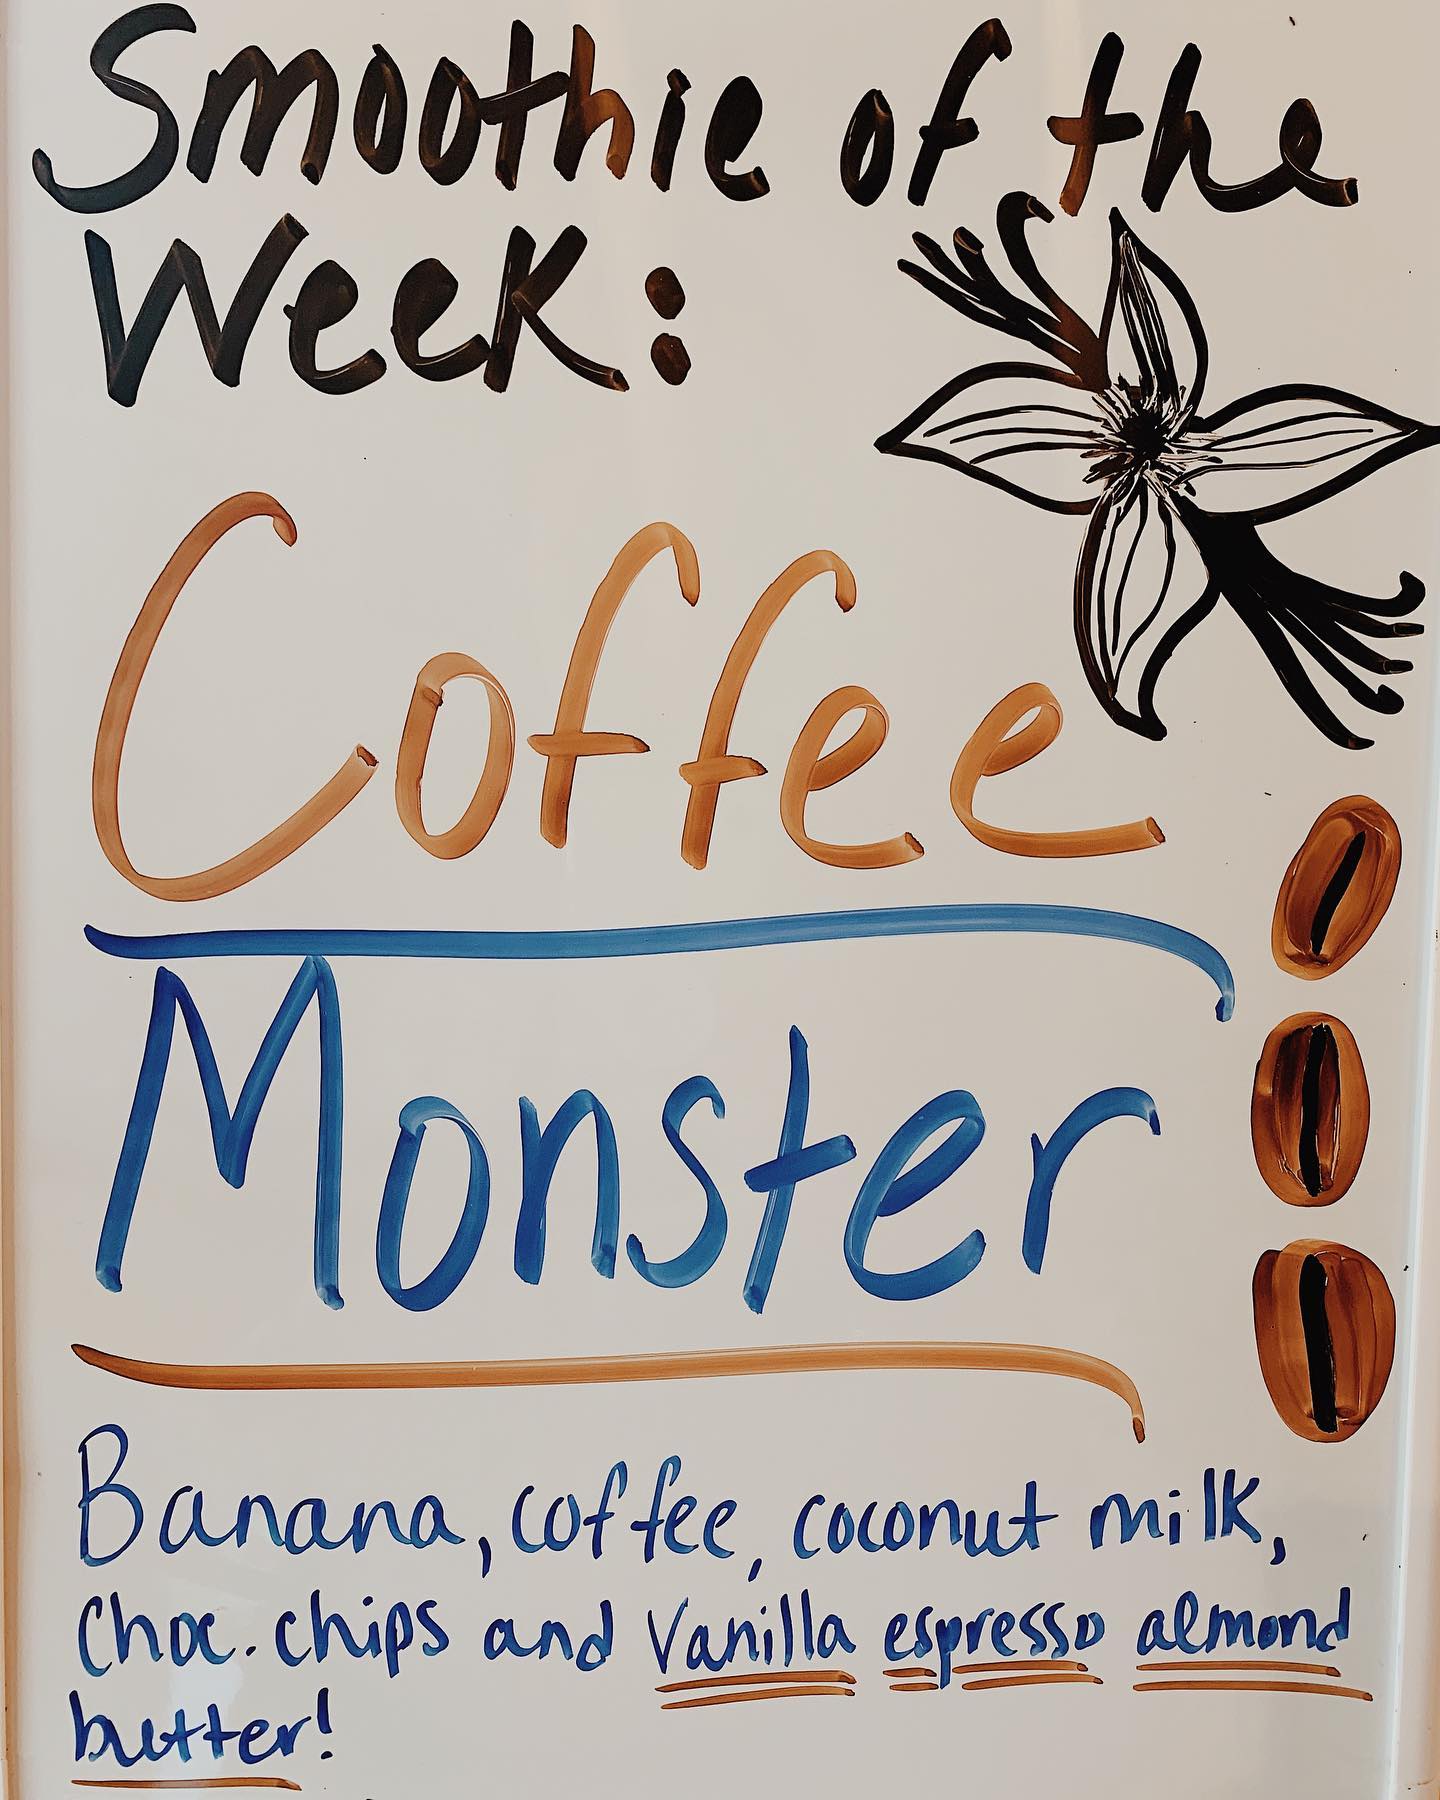 Smoothie of the
Week:
Coffee
Monster
Banana, coffee, coconut milk,
Choc. chips and Vanilla espresso almond
butter!